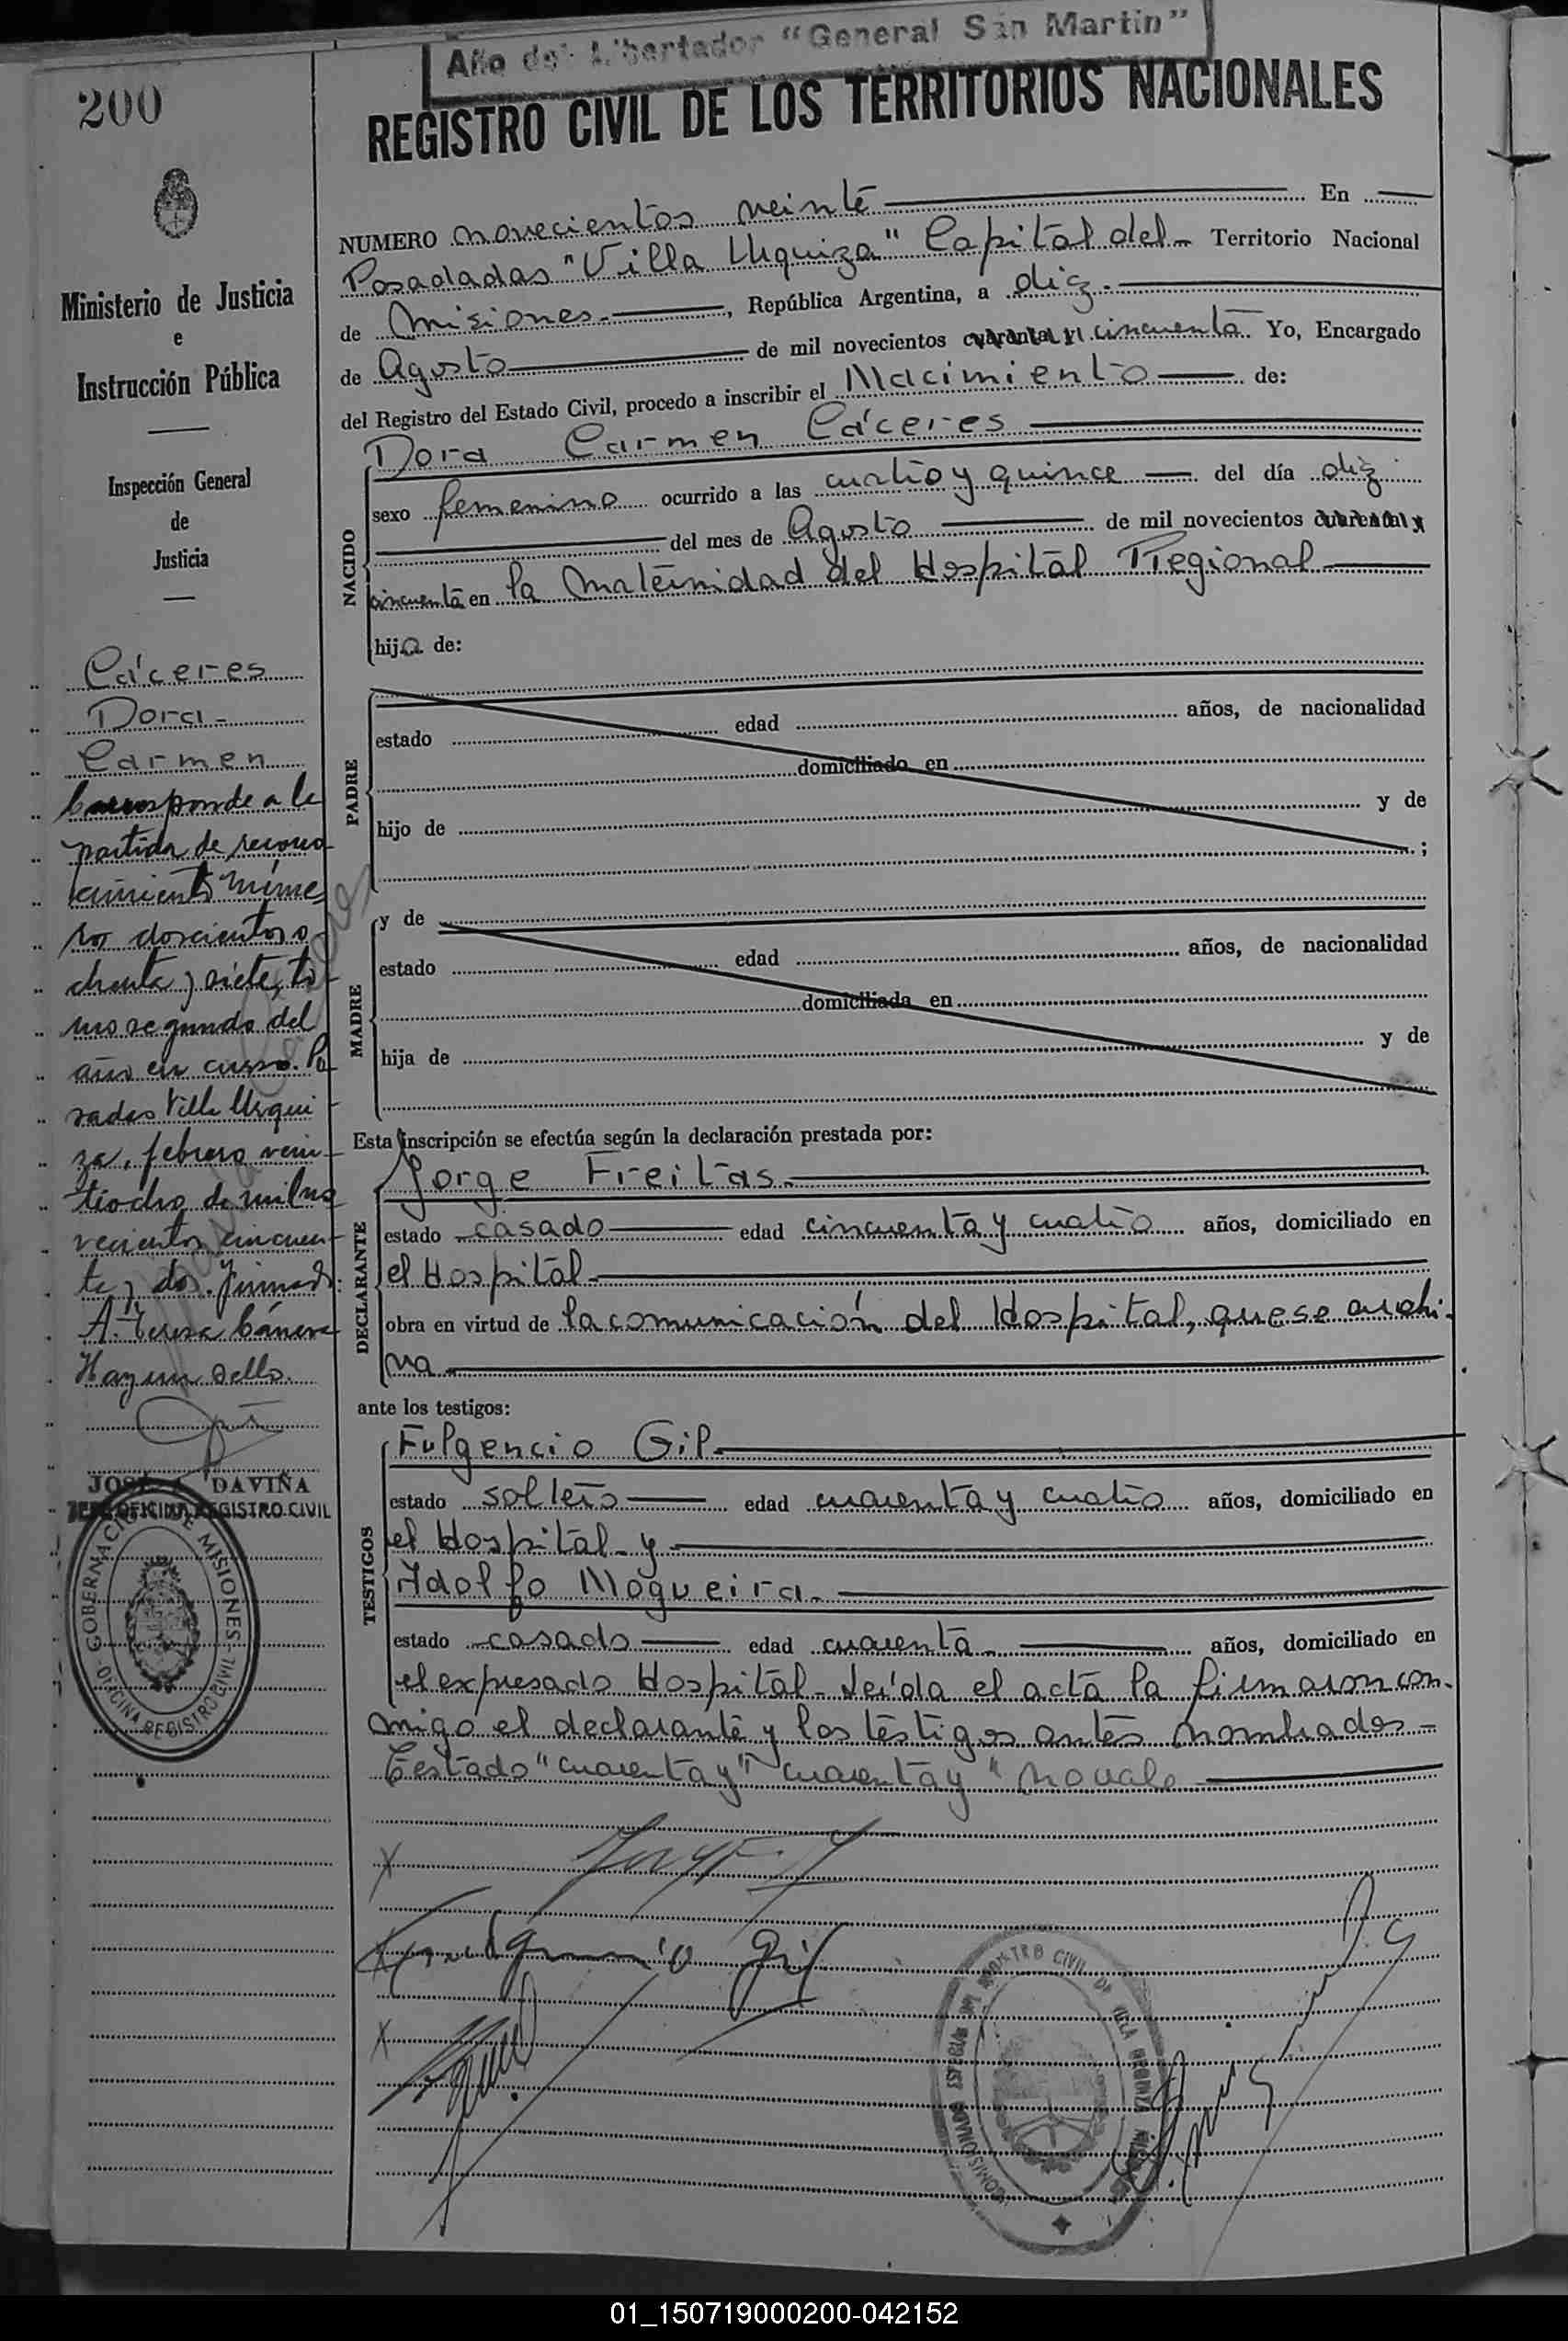 Año del Libertador "General San Martin"
200
REGISTRO CIVIL DE LOS TERRITORIOS NACIONALES
Ministerio de Justicia
e
Instrucción Pública
Inspección General
de
Justicia
Cáceres
Dora-
Carmen
Corresponde a la
partida de recono
cimiento núme
ro doscientos o-
chenta y siete, to-
mo segundo del
año en curso. Po
sadas Villa Urqui
za, febrero vein-
tiocho de mil no
vecientos cincuen-
ta y dos. Firmado:
A. Teresa Cánera
Hay un sello.
JOSÉ A. DAVIÑA
JEFE OFICINA REGISTRO CIVIL
GOBERNACION DE MISIONES
OFICINA REGISTRO CIVIL
NUMERO novecientos veinte En
Posadadas "Villa Urquiza" Capital del- Territorio Nacional
de Misiones.-, República Argentina, a diez.-
de Agosto de mil novecientos cuarenta y cincuenta Yo, Encargado
del Registro del Estado Civil, procedo a inscribir el Nacimiento de:
NACIDO
Dora Carmen Cáceres
sexo femenino ocurrido a las cuatro y quince del día diez
del mes de Agosto de mil novecientos cuarenta y
cincuenta en la Maternidad del Hospital Regional
hija de:
PADRE
estado edad años, de nacionalidad
domiciliado en
hijo de y de
;
MADRE
y de
estado edad años, de nacionalidad
domiciliada en
hija de y de
Esta inscripción se efectúa según la declaración prestada por:
DECLARANTE
Jorge Freitas.
estado casado edad cincuenta y cuatro años, domiciliado en
el Hospital
obra en virtud de la comunicación del Hospital, que se archi-
va
ante los testigos:
TESTIGOS
Fulgencio Gil.
estado soltero edad cuarenta y cuatro años, domiciliado en
el Hospital- y
Adolfo Nogueira.
estado casado edad cuarenta años, domiciliado en
el expresado Hospital- Leída el acta la firmaron con-
migo el declarante y los testigos antes nombrados-
Testado "cuarenta y" cuarenta y" no vale
Fulgencio Gil
01_150719000200-042152